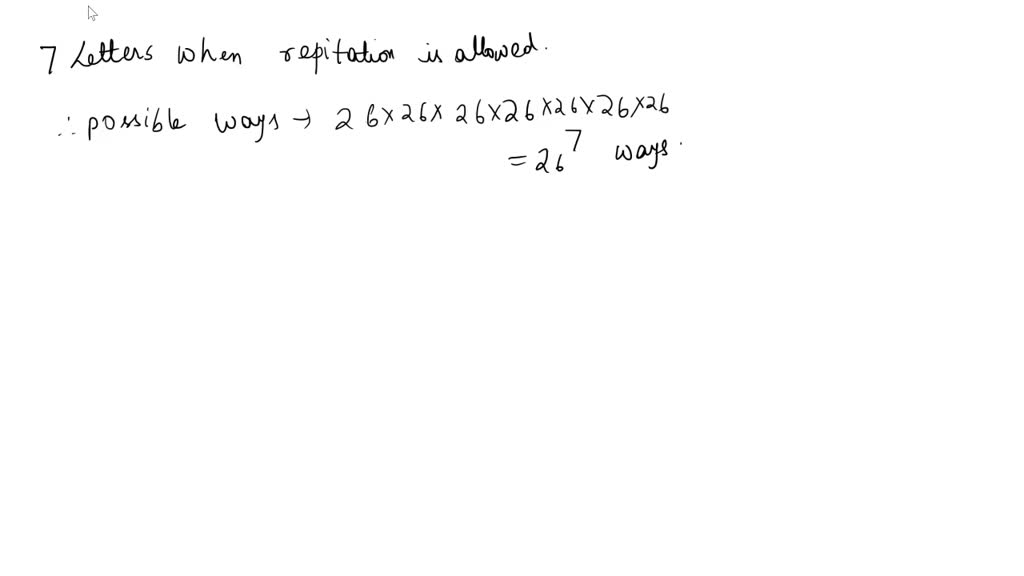 7 Letters when repitation is allowed.
∴ possible ways → 26×26×26×26×26×26×26
= 26⁷ ways.